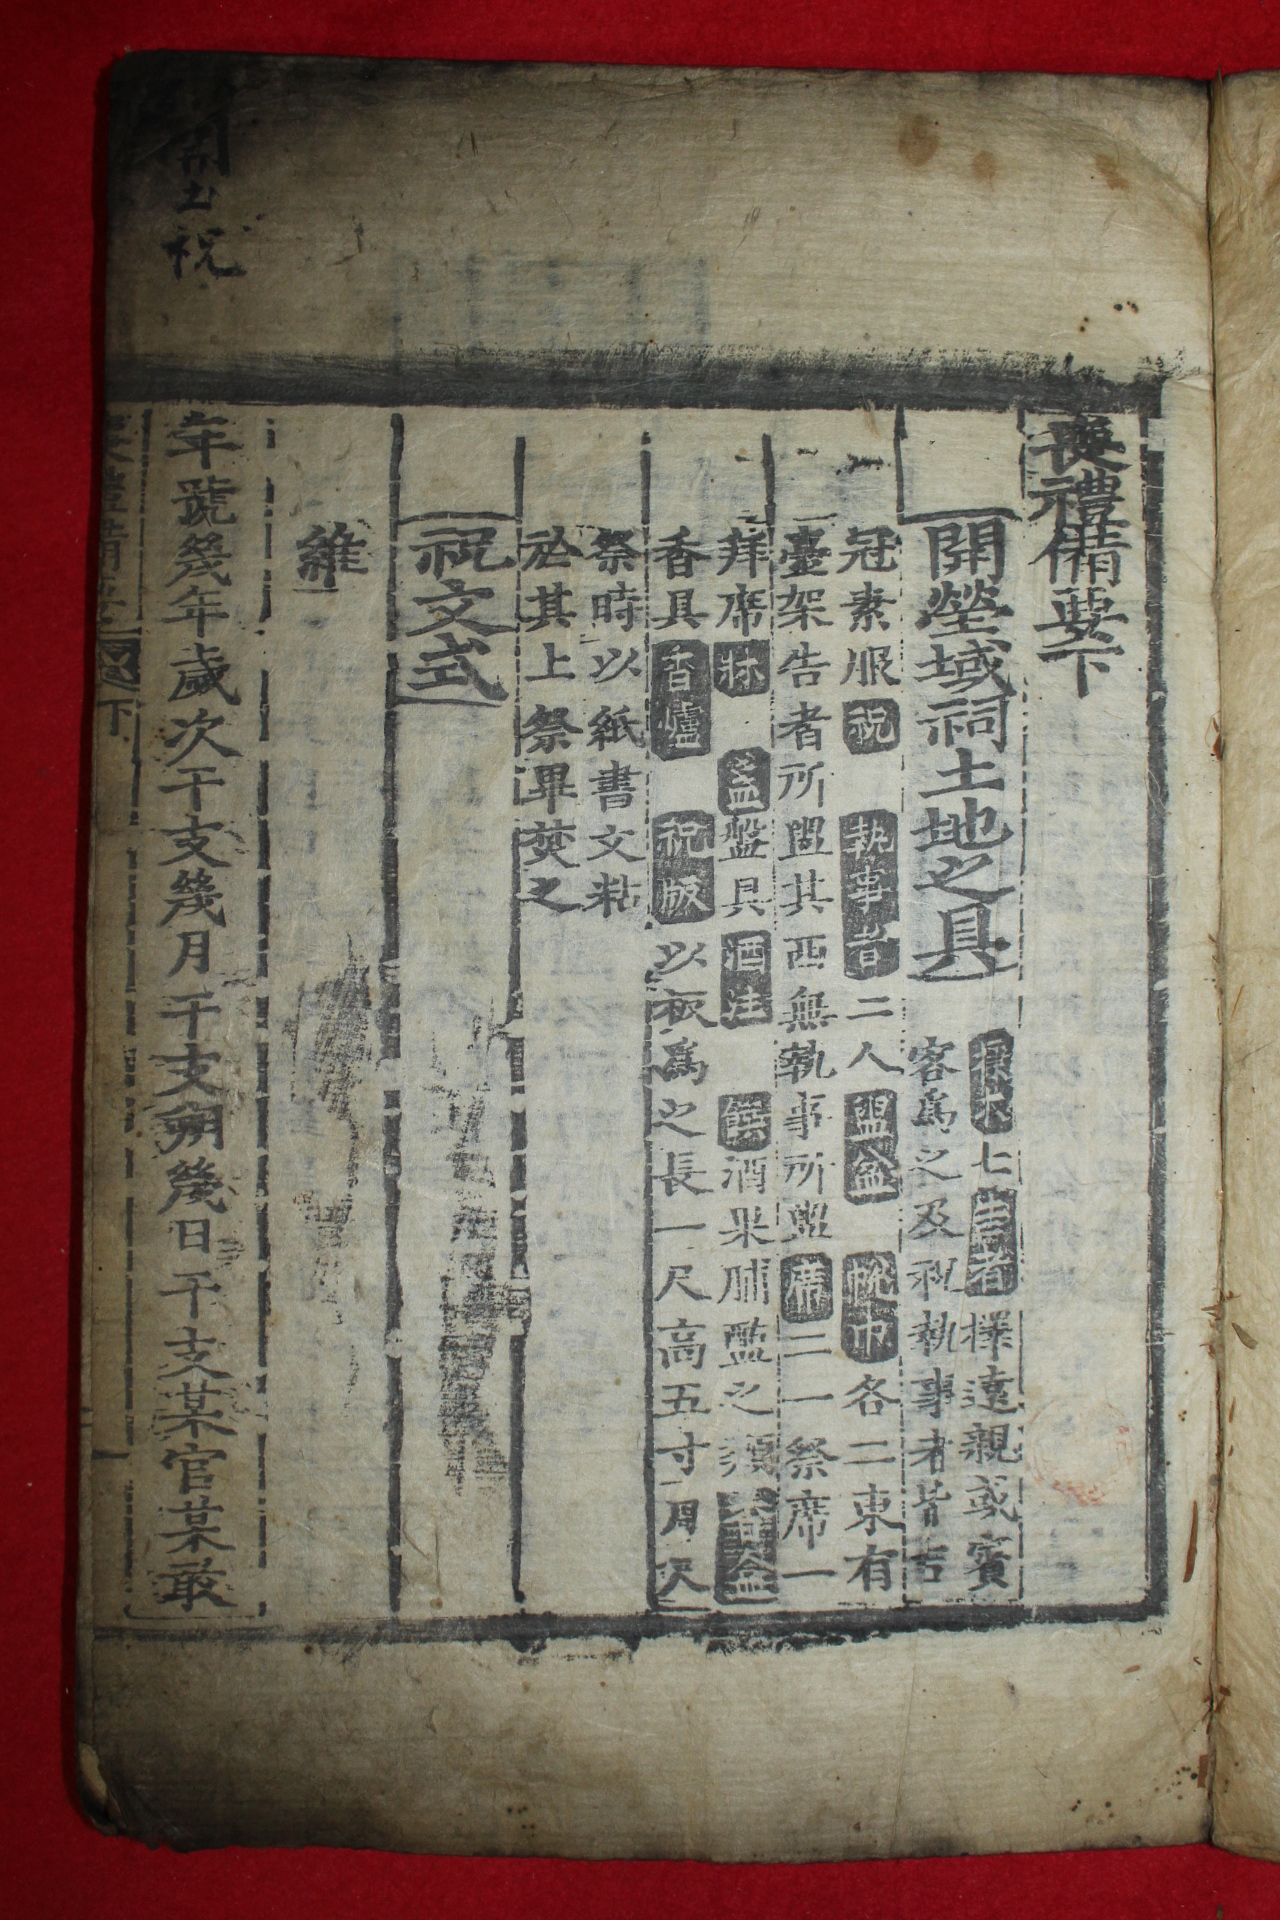 土祝
喪禮備要下
開塋域祠土地之具
標木七告者擇遠親或賓
客爲之及祝執事者皆吉
冠素服祝 執事者二人盥盆 帨巾各二東有
臺架告者所盥其西無執事所盥席二一祭席一
拜席牀 盞盤具酒注 饌酒果脯醢之類
香具香爐 祝版以板爲之長一尺高五寸用周尺
祭時以紙書文粘
於其上祭畢焚之
祝文式
維
年號幾年歲次干支幾月干支朔幾日干支某官某敢
喪禮備要 下